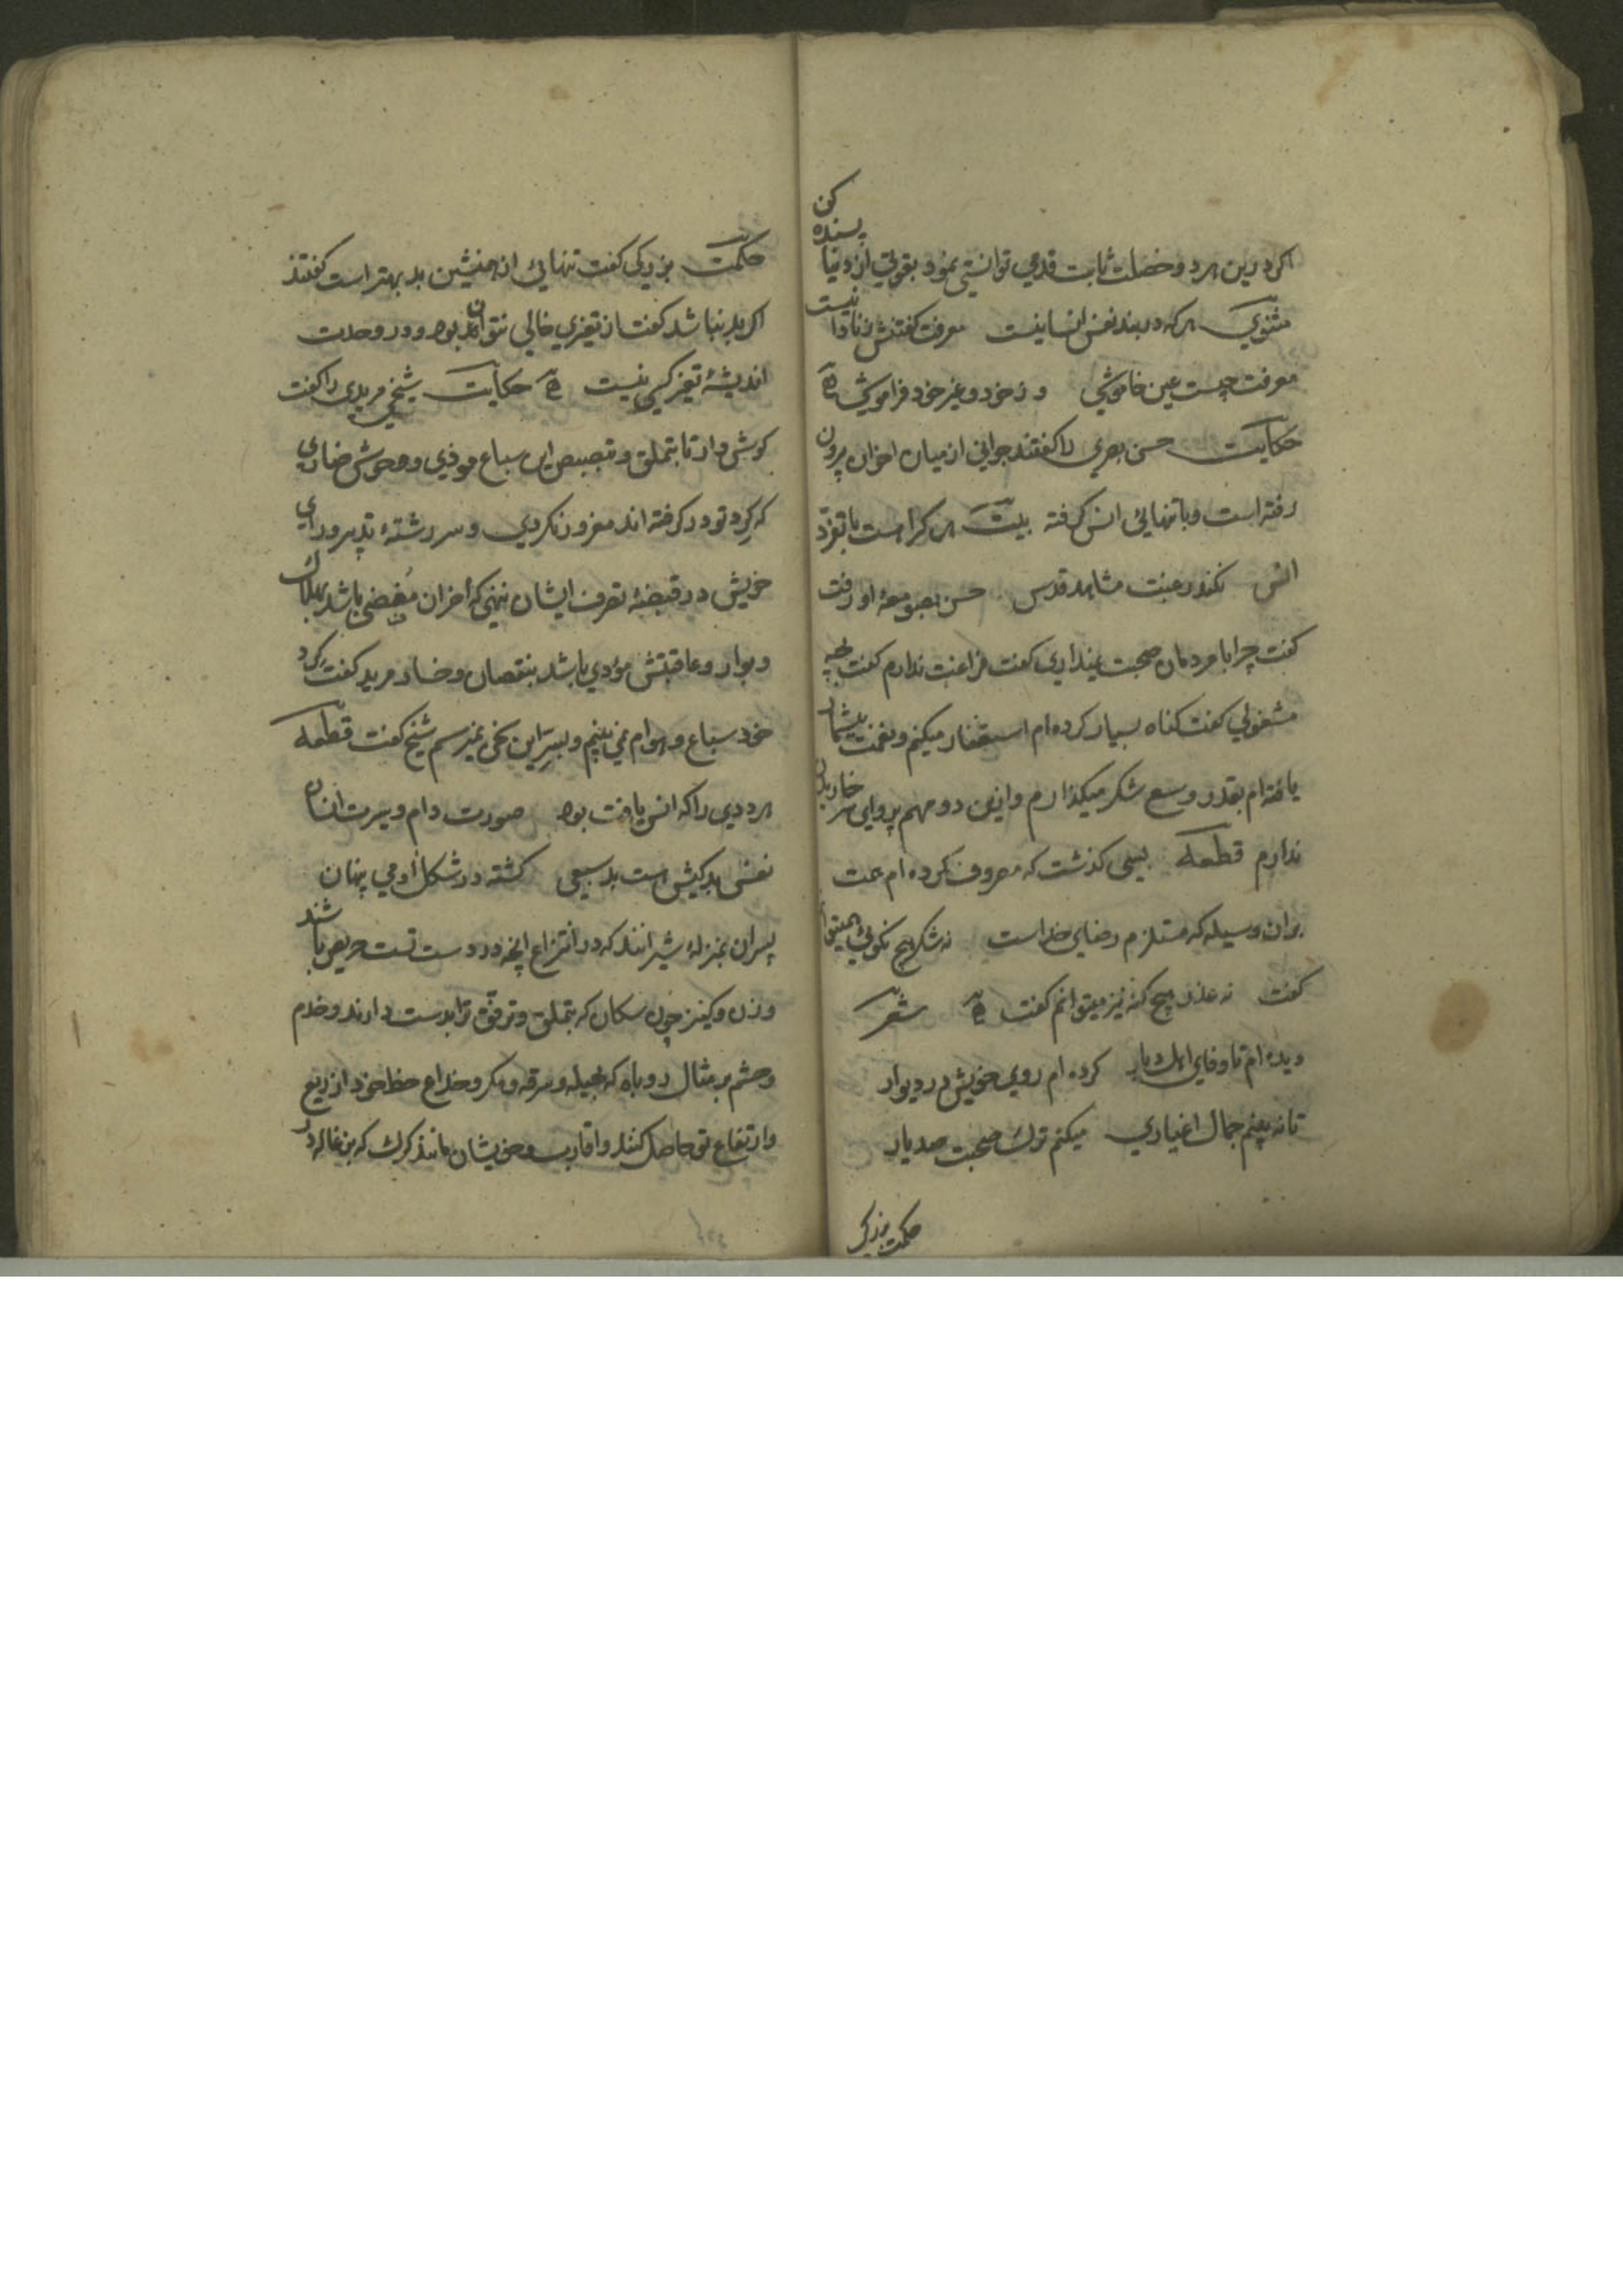 اکر درین هر دو خصلت ثابت قدمی توانستی نمود بقوتی از دنیا پسنده کن
مثنوی هر که در بند نفس انسانیست معرفت کفتنش ز نادانیست
معرفت چیست عین خاموشی وز خود و غیر خود فراموشی
حکایت حسن بصری را کفتند جوانی از میان اخوان بیرون
رفته است و با تنهائی انس کرفته بیت هر کرا هست با تفرّد
انس نکند رغبت مشاهد قدس حسن بصومعهٔ او رفت
کفت چرا با مردمان صحبت نمیداری کفت فراغت ندارم کفت بچه
مشغولی کفت کناه بسیار کرده ام استغفار میکنم و نعمت بیشمار
یافته ام بقدر وسع شکر میکذارم و ازین دو مهم پروای سر خاریدن
ندارم قطعه بسی کذشت که مصروف کرده ام همت
بران وسیله که مستلزم رضای خداست نه شکر هیچ نکوئی همیتوانم
کفت نه عذر هیچ کنه نیز میتوانم کفت شعر
دیده ام تا وفای اهل دیار کرده ام روی خویش در دیوار
تا نه بینم جمال اغیاری میکنم ترک صحبت صد یار
حکمت بزرکی
حکمت بزرکی کفت تنهائی از همنشین بد بهتر است کفتند
اکر بد نباشد کفت از تغیری خالی نتواند بود و در وحدت
اندیشهٔ تغیر کسی نیست حکایت شیخی مریدی را کفت
کوش دار تا بتملق و تبصبص این سباع موذی و وحوش ضاری
که کرد تو در کرفته اند مغرور نکردی و سر رشتهٔ تدبیر و رای
خویش در قبضهٔ تصرف ایشان ننهی که آخر ان مفضی باشد بهلاک
و بوار و عاقبتش مؤدی باشد بنقصان و خسار مرید کفت کرد
خود سباع و هوام نمی بینم و بسرّ این سخن نمیرسم شیخ کفت قطعه
هر ددی را که انس یافت بود صورت دام و سیرت انسان
نفس بد کیش است بد سبعی کشته در شکل آدمی پنهان
پسران بمنزلهٔ شیرانند که در انتزاع انچه در دست تست حریص باشند
و زن و کنیز چون سکان که بتملق و ترفق ترا بدست دارند و خدم
و حشم بر مثال روباه که بحیله و سرقه و مکر و خداع حظ خود از ریع
و ارتفاع تو حاصل کنند و اقارب و خویشان مانند کرک که بزغاله را